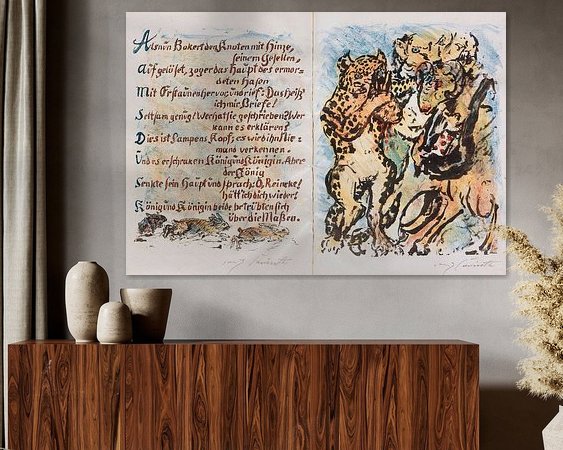 Als nun Bokert den Knoten mit Hinze,
seinem Gesellen,
Aufgelöset, zog er das Haupt des ermor-
deten Hasen
Mit Erstaunen hervor, und rief: Das heiß'
ich mir Briefe!
Seltsam genug! Wer hat sie geschrieben? Wer
kann es erklären?
Dies ist Lampens Kopf; es wird ihn Nie-
mand verkennen.
Und es erschraken König und Königin. Aber
der König
Senkte sein Haupt und sprach: O, Reineke!
hätt ich dich wieder!
König und Königin beide betrübten sich
über die Maßen.